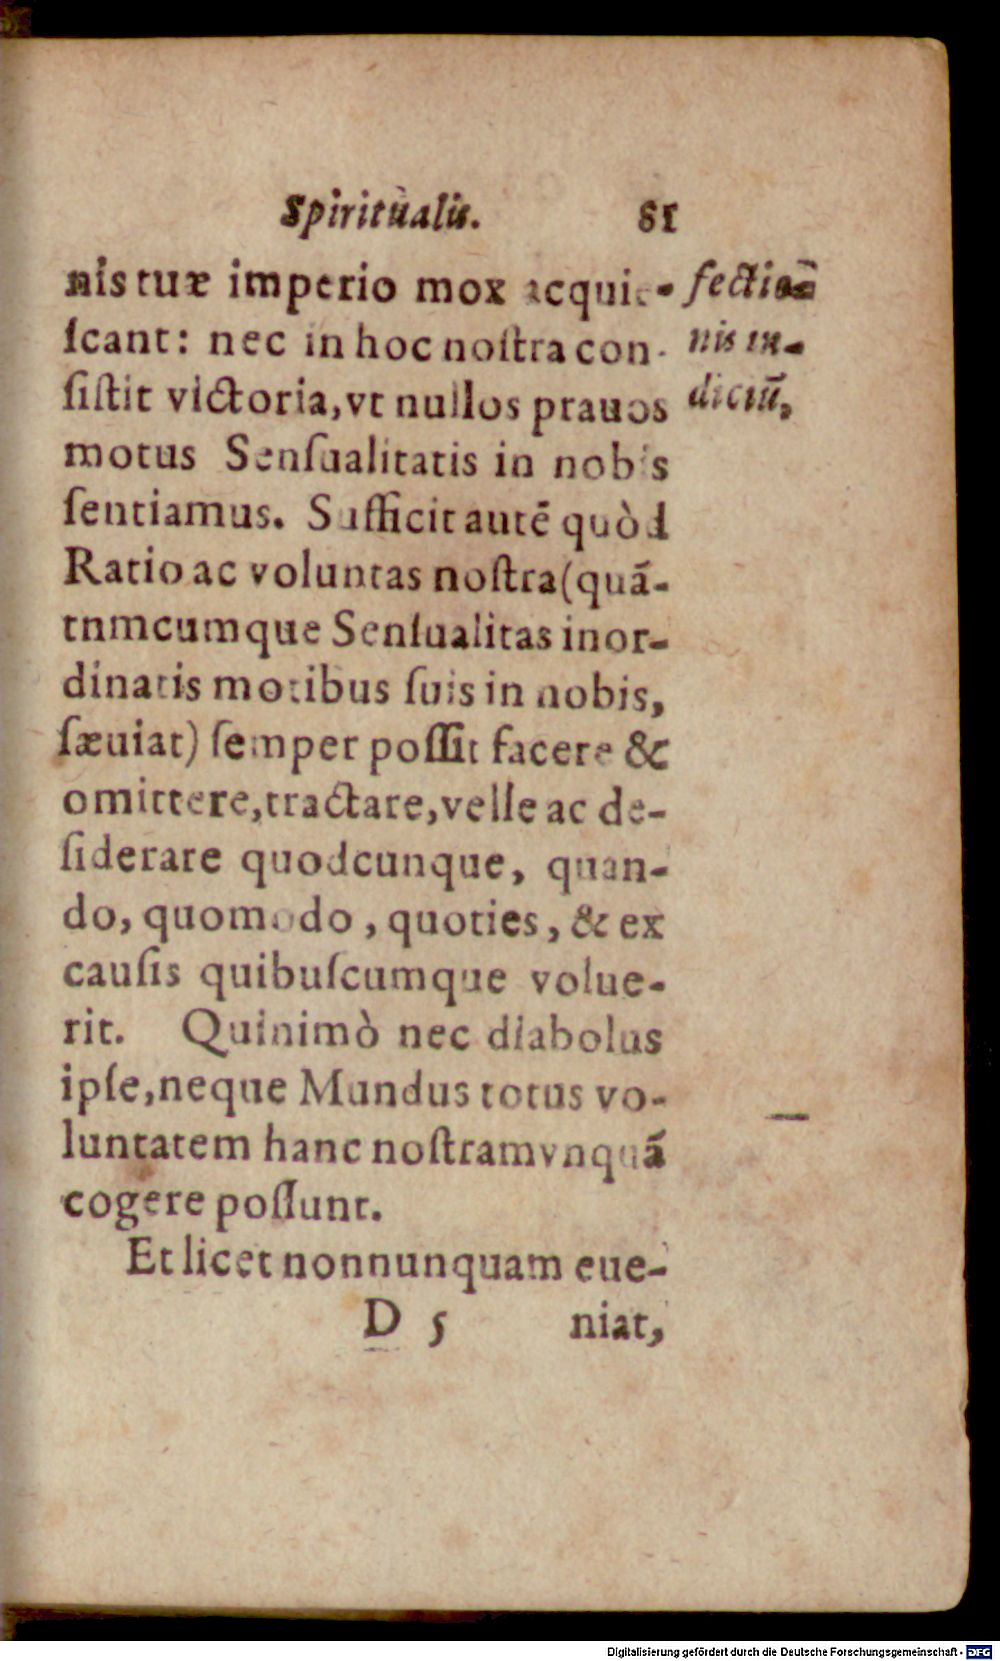 Spiritualis. 81
nis tuæ imperio mox acquie-
ſcant: nec in hoc noſtra con-
ſiſtit victoria, vt nullos prauos
motus Senſualitatis in nobis
ſentiamus. Sufficit autẽ quòd
Ratio ac voluntas noſtra (quã-
tnmcumque Senſualitas inor-
dinatis motibus ſuis in nobis,
ſæuiat) ſemper poſſit facere &
omittere, tractare, velle ac de-
ſiderare quodcunque, quan-
do, quomodo, quoties, & ex
cauſis quibuſcumque volue-
rit. Quinimò nec diabolus
ipſe, neque Mundus totus vo-
luntatem hanc noſtram vnquã
cogere poſſunt.
Et licet nonnunquam eue-
D 5 niat,
fectio-
nis in-
diciũ,
Digitalisierung gefördert durch die Deutsche Forschungsgemeinschaft - DFG